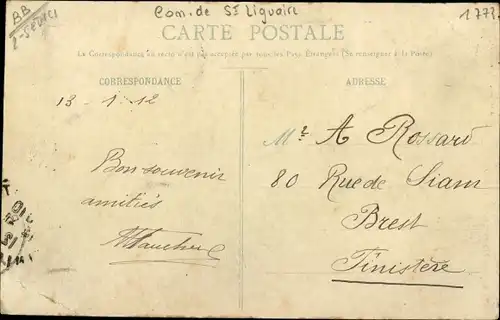 BB
2-SEVRES
Com. de St Liguaire
1773.
CARTE POSTALE
La Correspondance au recto n'est pas acceptée par tous les Pays Étrangers (Se renseigner à la Poste)
CORRESPONDANCE
13-1-12
Bon souvenir
amitiés
ADRESSE
Mr A Rossard
80 Rue de Siam
Brest
Finistère